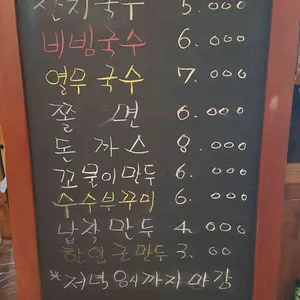 잔치국수 5.000
비빔국수 6.000
열무국수 7.000
쫄 면 6.000
돈까스 8.000
꼬물이만두 6.000
수수부꾸미 6.
납작만두 4.000
만두 3.00
*저녁 8시까지 마감